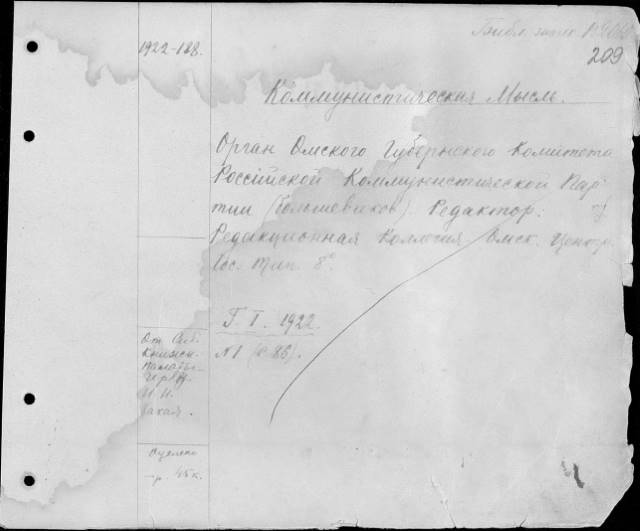 Библ.
209
1922-188.
Коммунистическая Мысль.
Орган Омского Губернского Комитета
Российской Коммунистической Пар
тии (большевиков). Редактор:
Редакционная Коллегия. Омск. Центр.
Гос. Тип. 8°.
Г. I. 1922.
№ 1 (с. 86).
От Сиб.
Книжн.
Палаты
И. И.
Оценено
—р. 45 к.